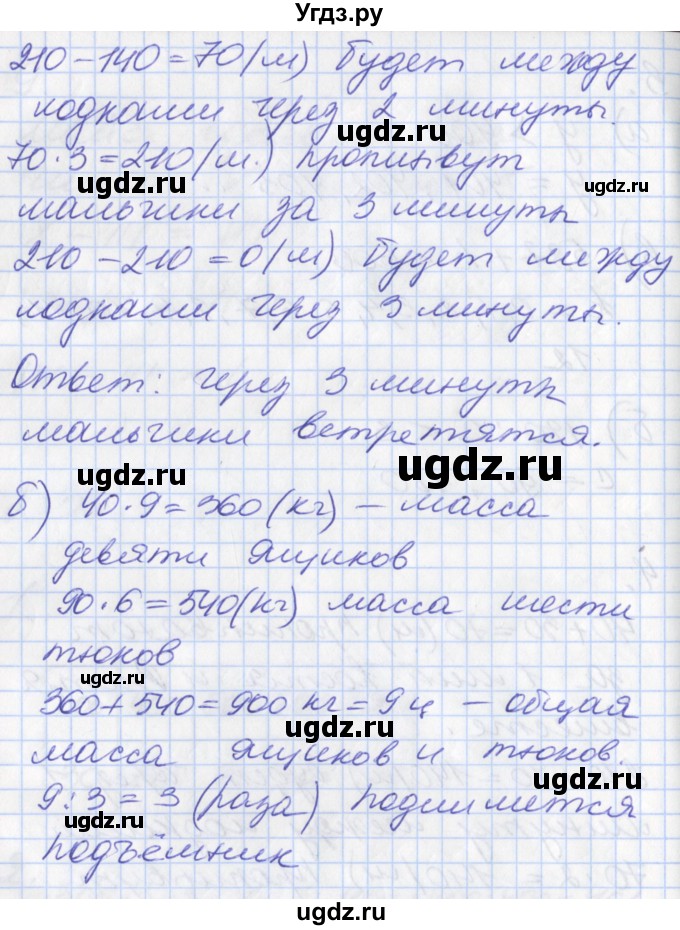 Угдз.ру
210 – 140 = 70 (м) будет между
лодками через 2 минуты.
ugdz.ru
70 · 3 = 210 (м.) проплывут
ugdz.ru
ugdz.ru
мальчики за 3 минуты
210 – 210 = 0 (м) будет между
лодками через 3 минуты.
ugdz.ru
ugdz.ru
Ответ: через 3 минуты
мальчики встретятся.
ugdz.ru
ugdz.ru
б) 40 · 9 = 360 (кг) – масса
девяти ящиков
ugdz.ru
90 · 6 = 540 (кг) масса шести
тюков
ugdz.ru
360 + 540 = 900 кг = 9 ц – общая
масса ящиков и тюков.
ugdz.ru
9 : 3 = 3 (раза) поднимется
ugdz.ru
подъёмник
ugdz.ru